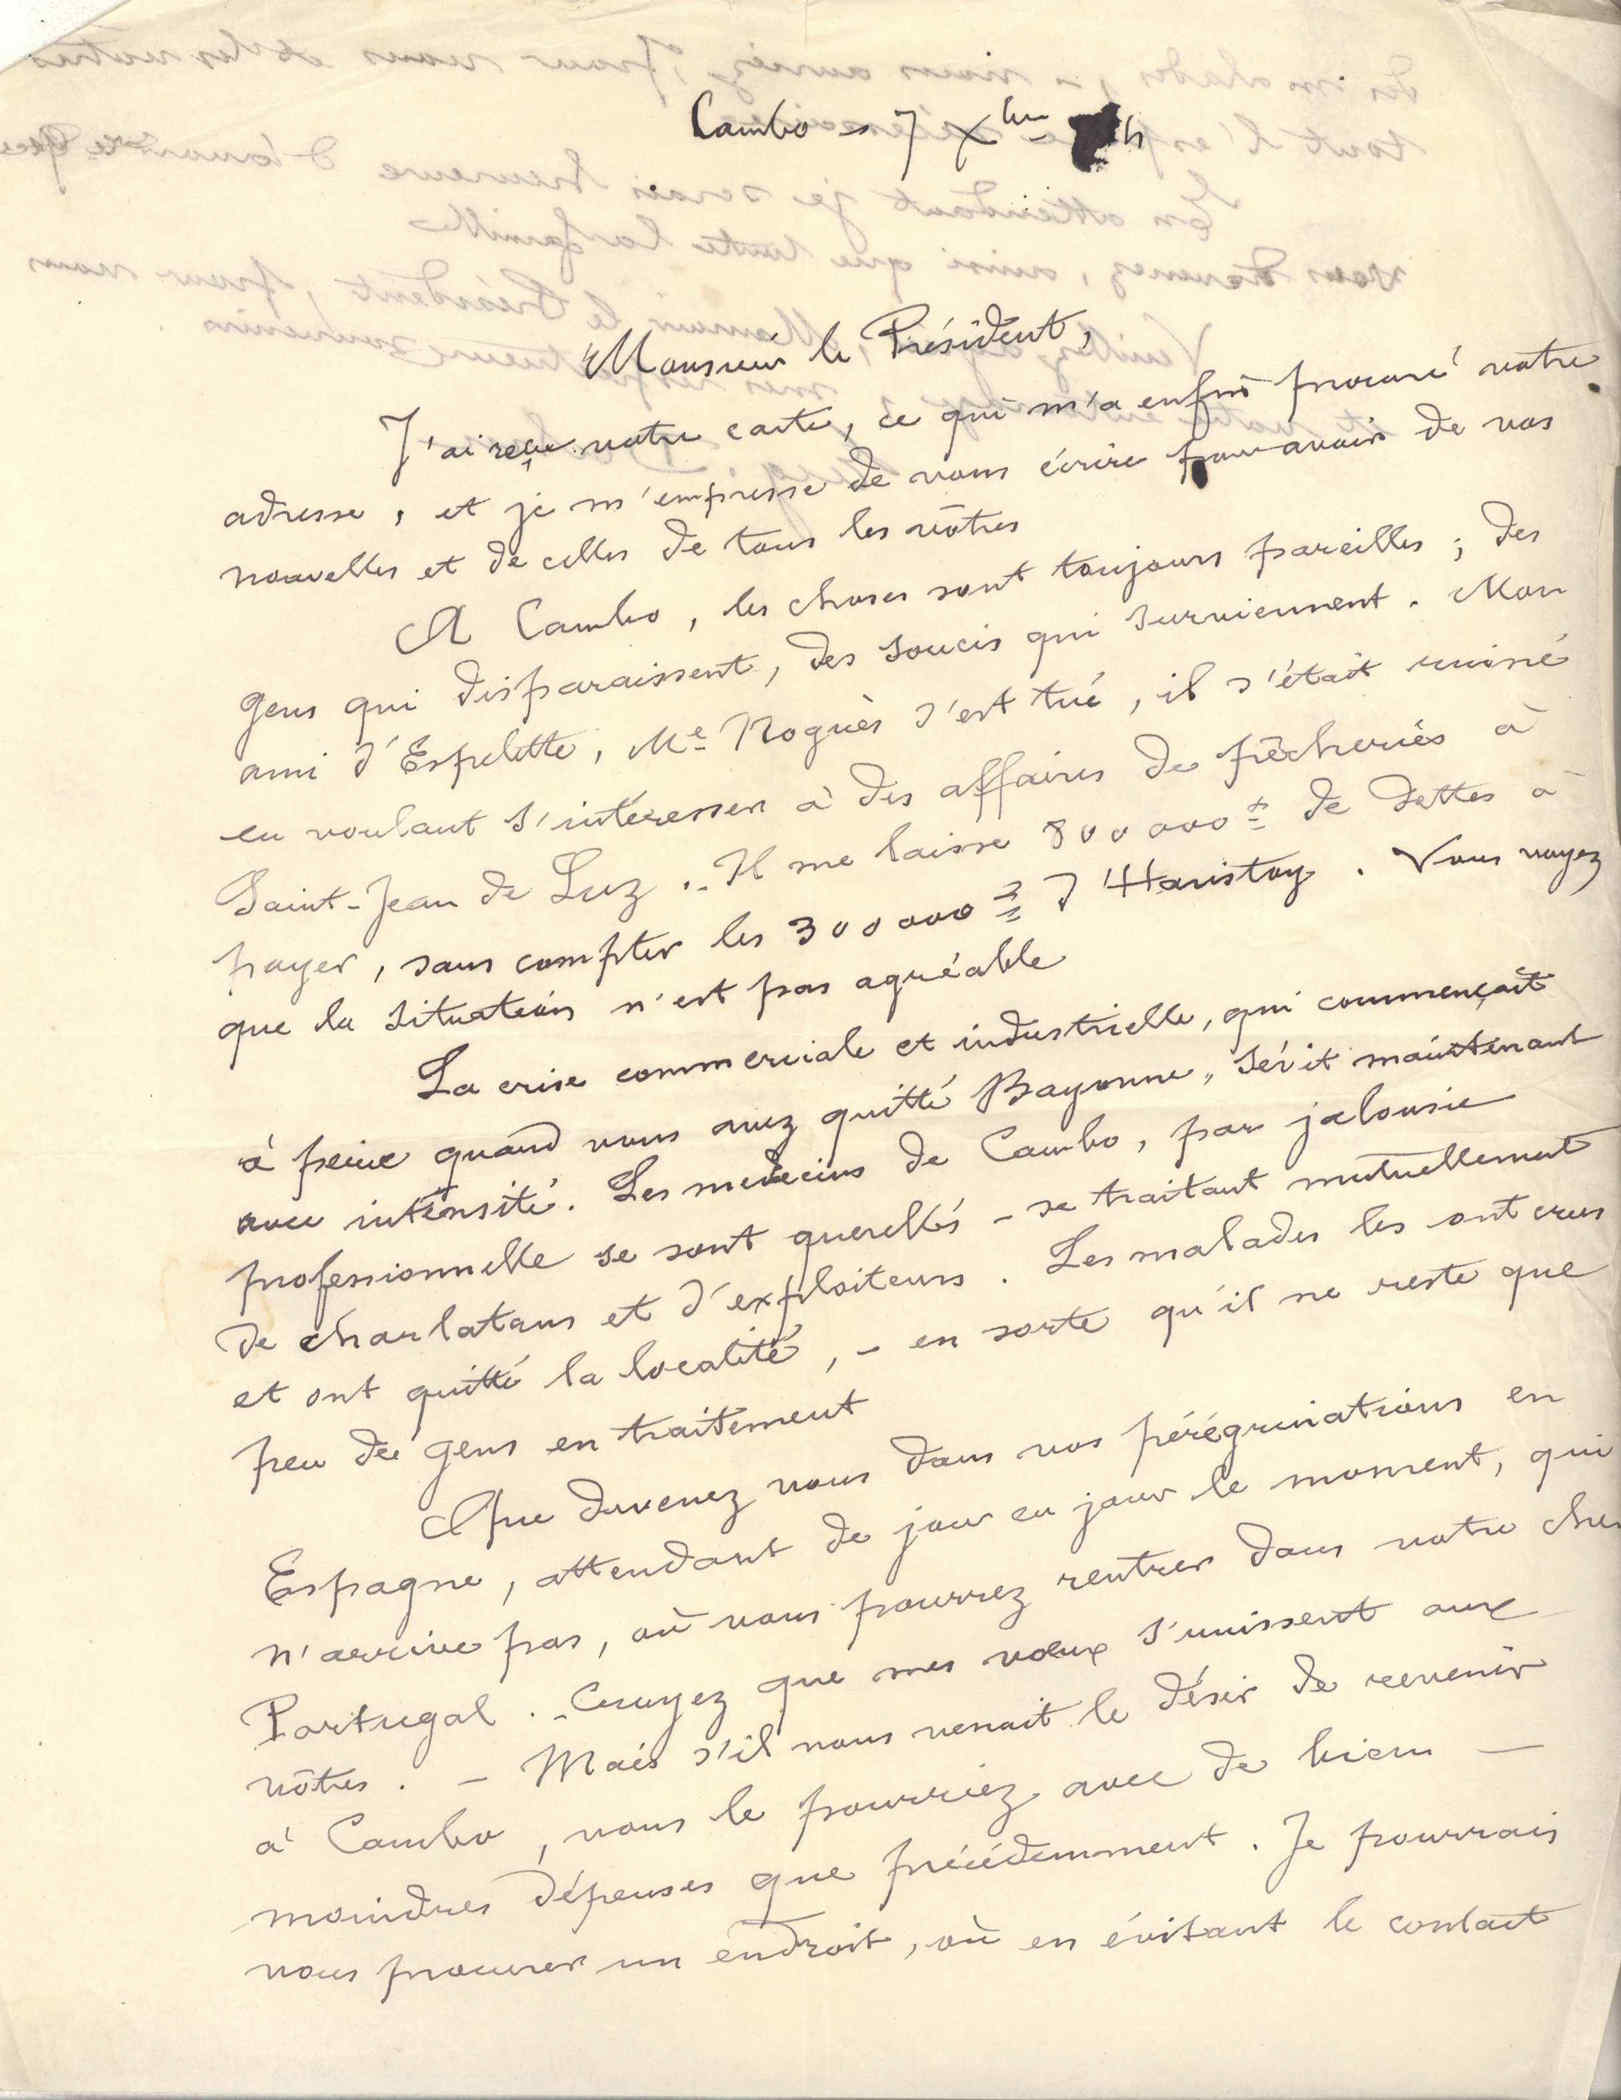 Cambo - 7 Xbre
Monsieur le Président,
J'ai reçu votre carte, ce qui m'a enfin procuré votre
adresse, et je m'empresse de vous écrire pour avoir de vos
nouvelles et de celles de tous les vôtres
A Cambo, les choses sont toujours pareilles ; des
gens qui disparaissent, des soucis qui surviennent. Mon
ami d'Espelette, Me Noguès s'est tué, il s'était ruiné
en voulant s'intéresser à des affaires de pêcheries à
Saint-Jean de Luz .- Il me laisse 800 000 f de dettes à
payer, sans compter les 300 000 f d'Haristoy. Vous voyez
que la situation n'est pas agréable
La crise commerciale et industrielle, qui commençait
à peine quand vous avez quitté Bayonne, sévit maintenant
avec intensité. Les medecins de Cambo, par jalousie
professionnelle se sont querellés - se traitant mutuellement
de charlatans et d'exploiteurs. Les malades les ont crus
et ont quitté la localité, - en sorte qu'il ne reste que
peu de gens en traitement
Que devenez vous dans vos pérégrinations en
Espagne, attendant de jour en jour le moment, qui
n'arrive pas, où vous pourrez rentrer dans votre cher
Portugal .- Croyez que mes vœux s'unissent aux
vôtres. - Mais s'il vous venait le désir de revenir
à Cambo, vous le pourriez avec de bien -
moindres dépenses que précédemment. Je pourrais
vous procurer un endroit, où en évitant le contact